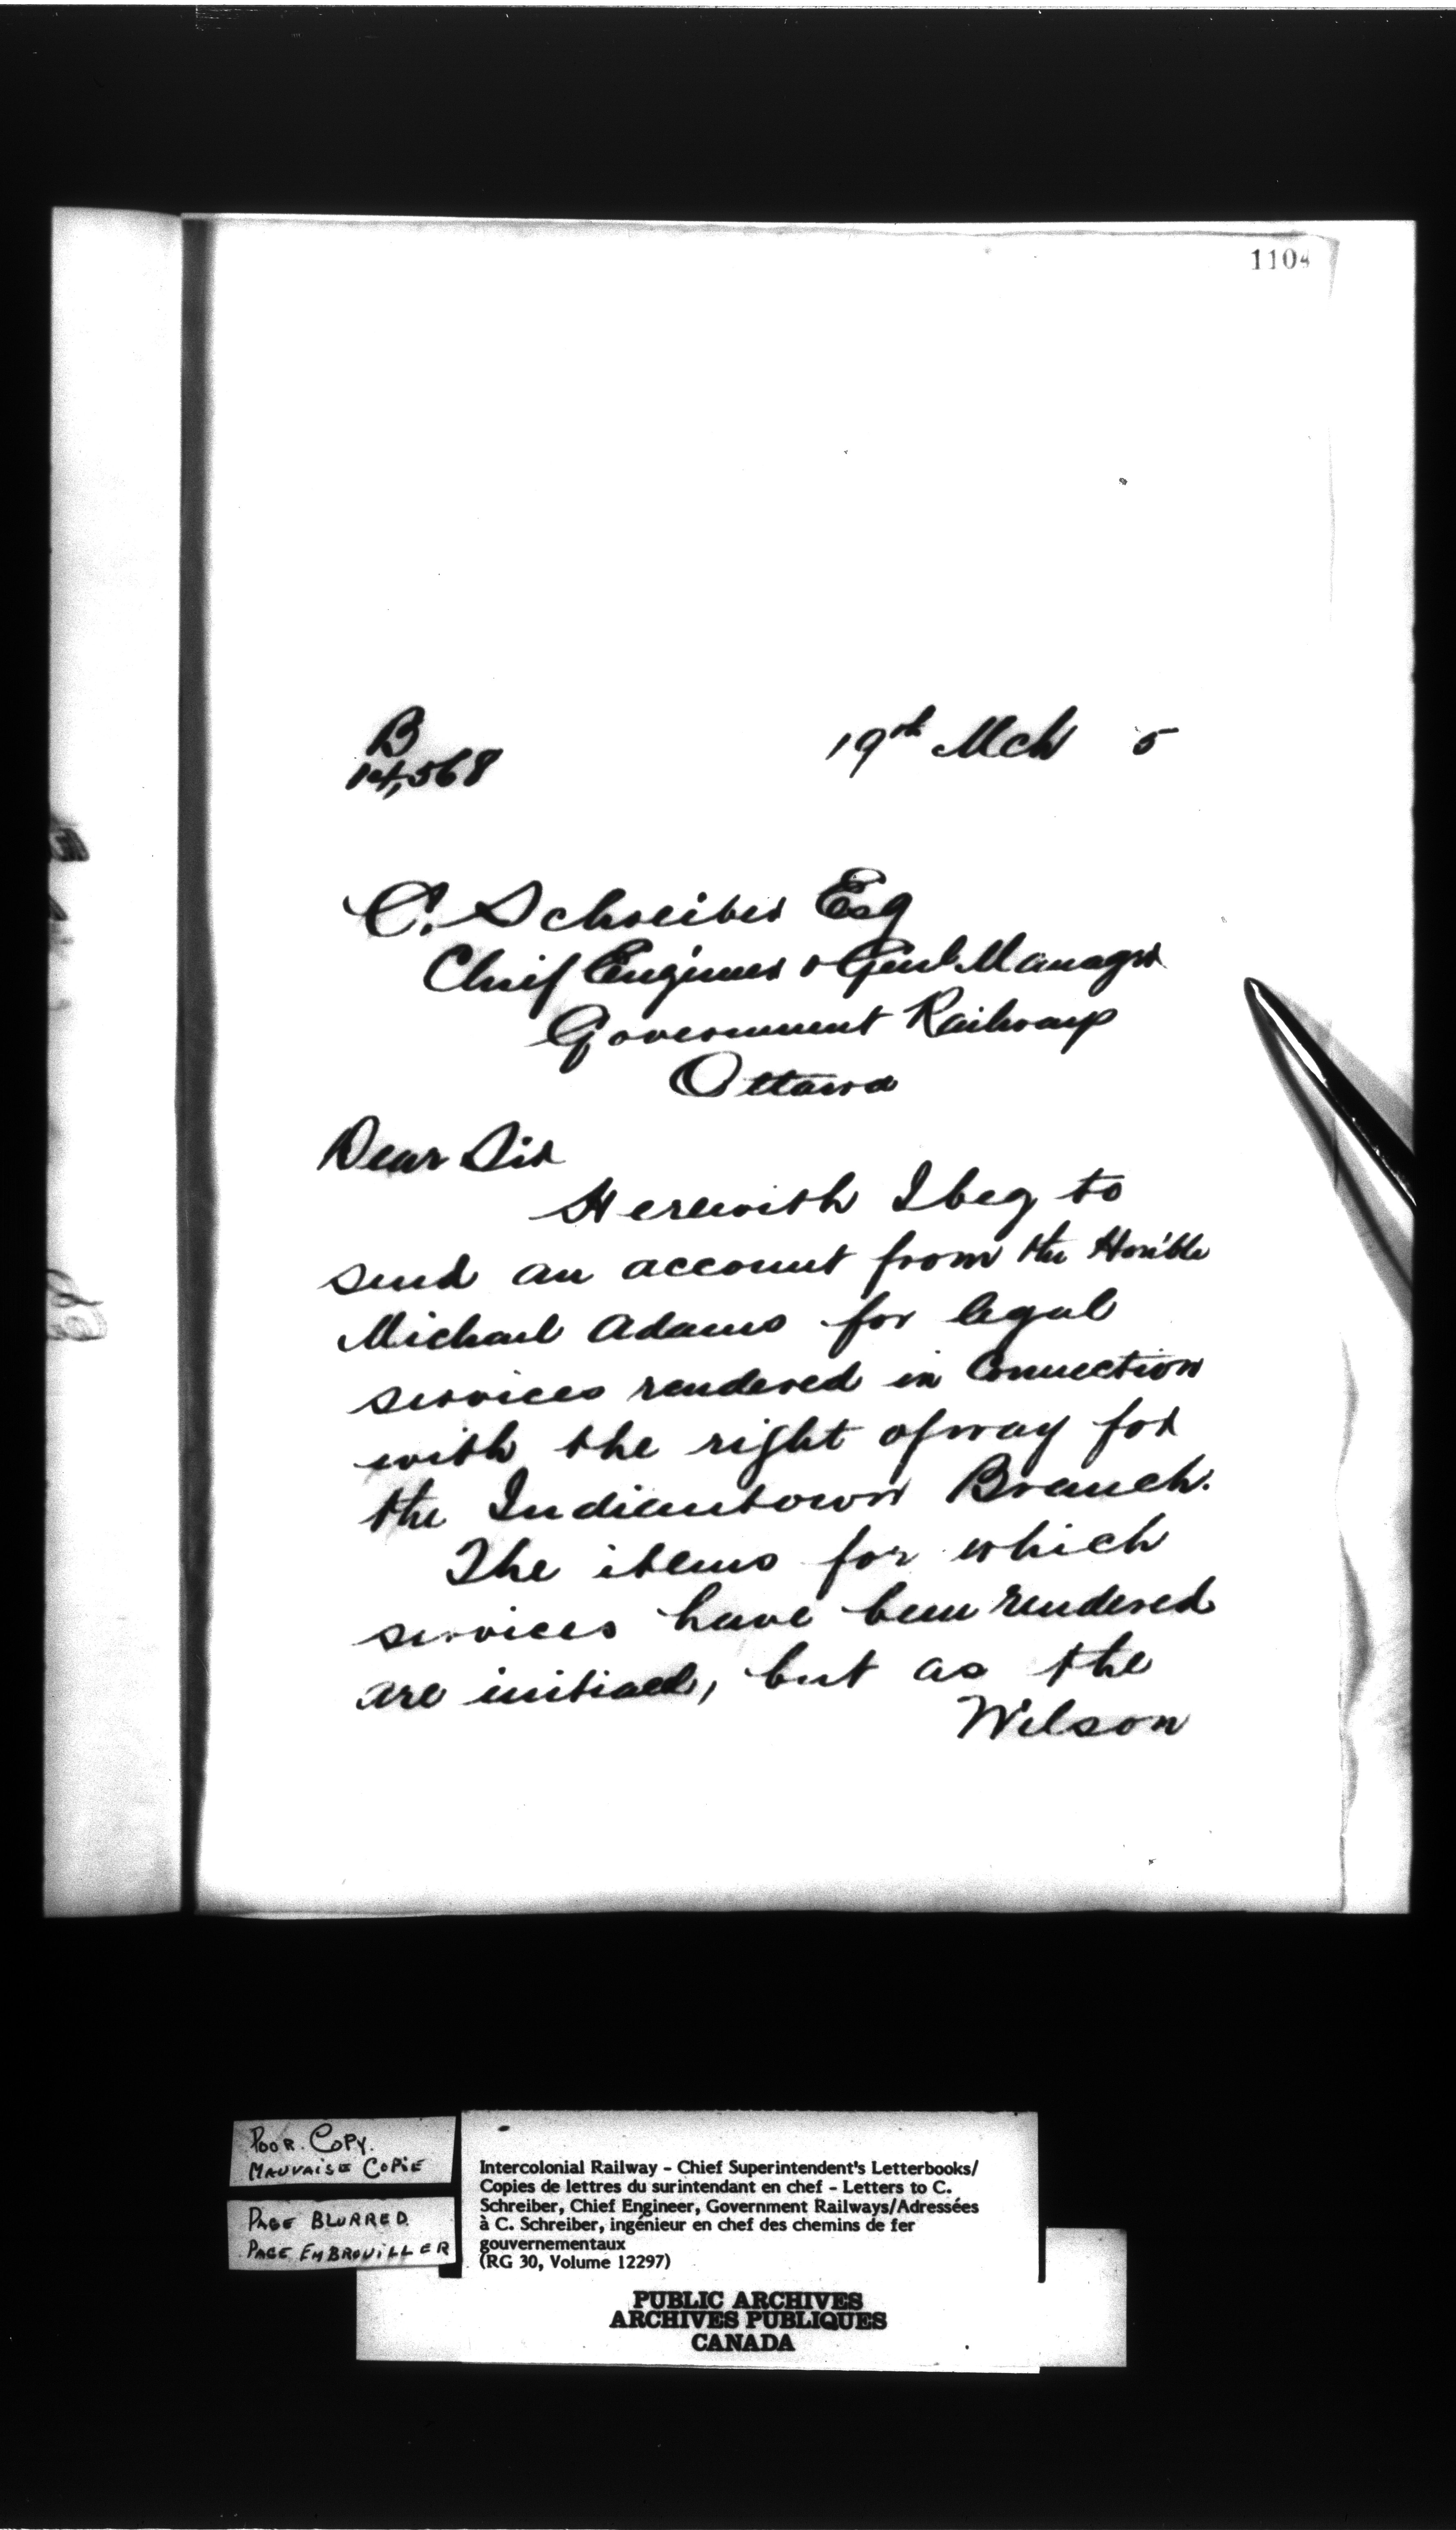 1104
B
14,568
19th Mch 5
C. Schreiber Esq
Chief Engineer & Genl Manager
Government Railways
Ottawa
Dear Sir
Herewith I beg to
send an account from the Hon'ble
Michael Adams for legal
services rendered in Connection
with the right of way for
the Indiantown Branch.
The items for which
services have been rendered
are initialed, but as the
Wilson
POOR. COPY.
MAUVAISE COPIE
PAGE BLURRED
PAGE EMBROUILLER
Intercolonial Railway - Chief Superintendent's Letterbooks/
Copies de lettres du surintendant en chef - Letters to C.
Schreiber, Chief Engineer, Government Railways/Adressées
à C. Schreiber, ingénieur en chef des chemins de fer
gouvernementaux
(RG 30, Volume 12297)
PUBLIC ARCHIVES
ARCHIVES PUBLIQUES
CANADA